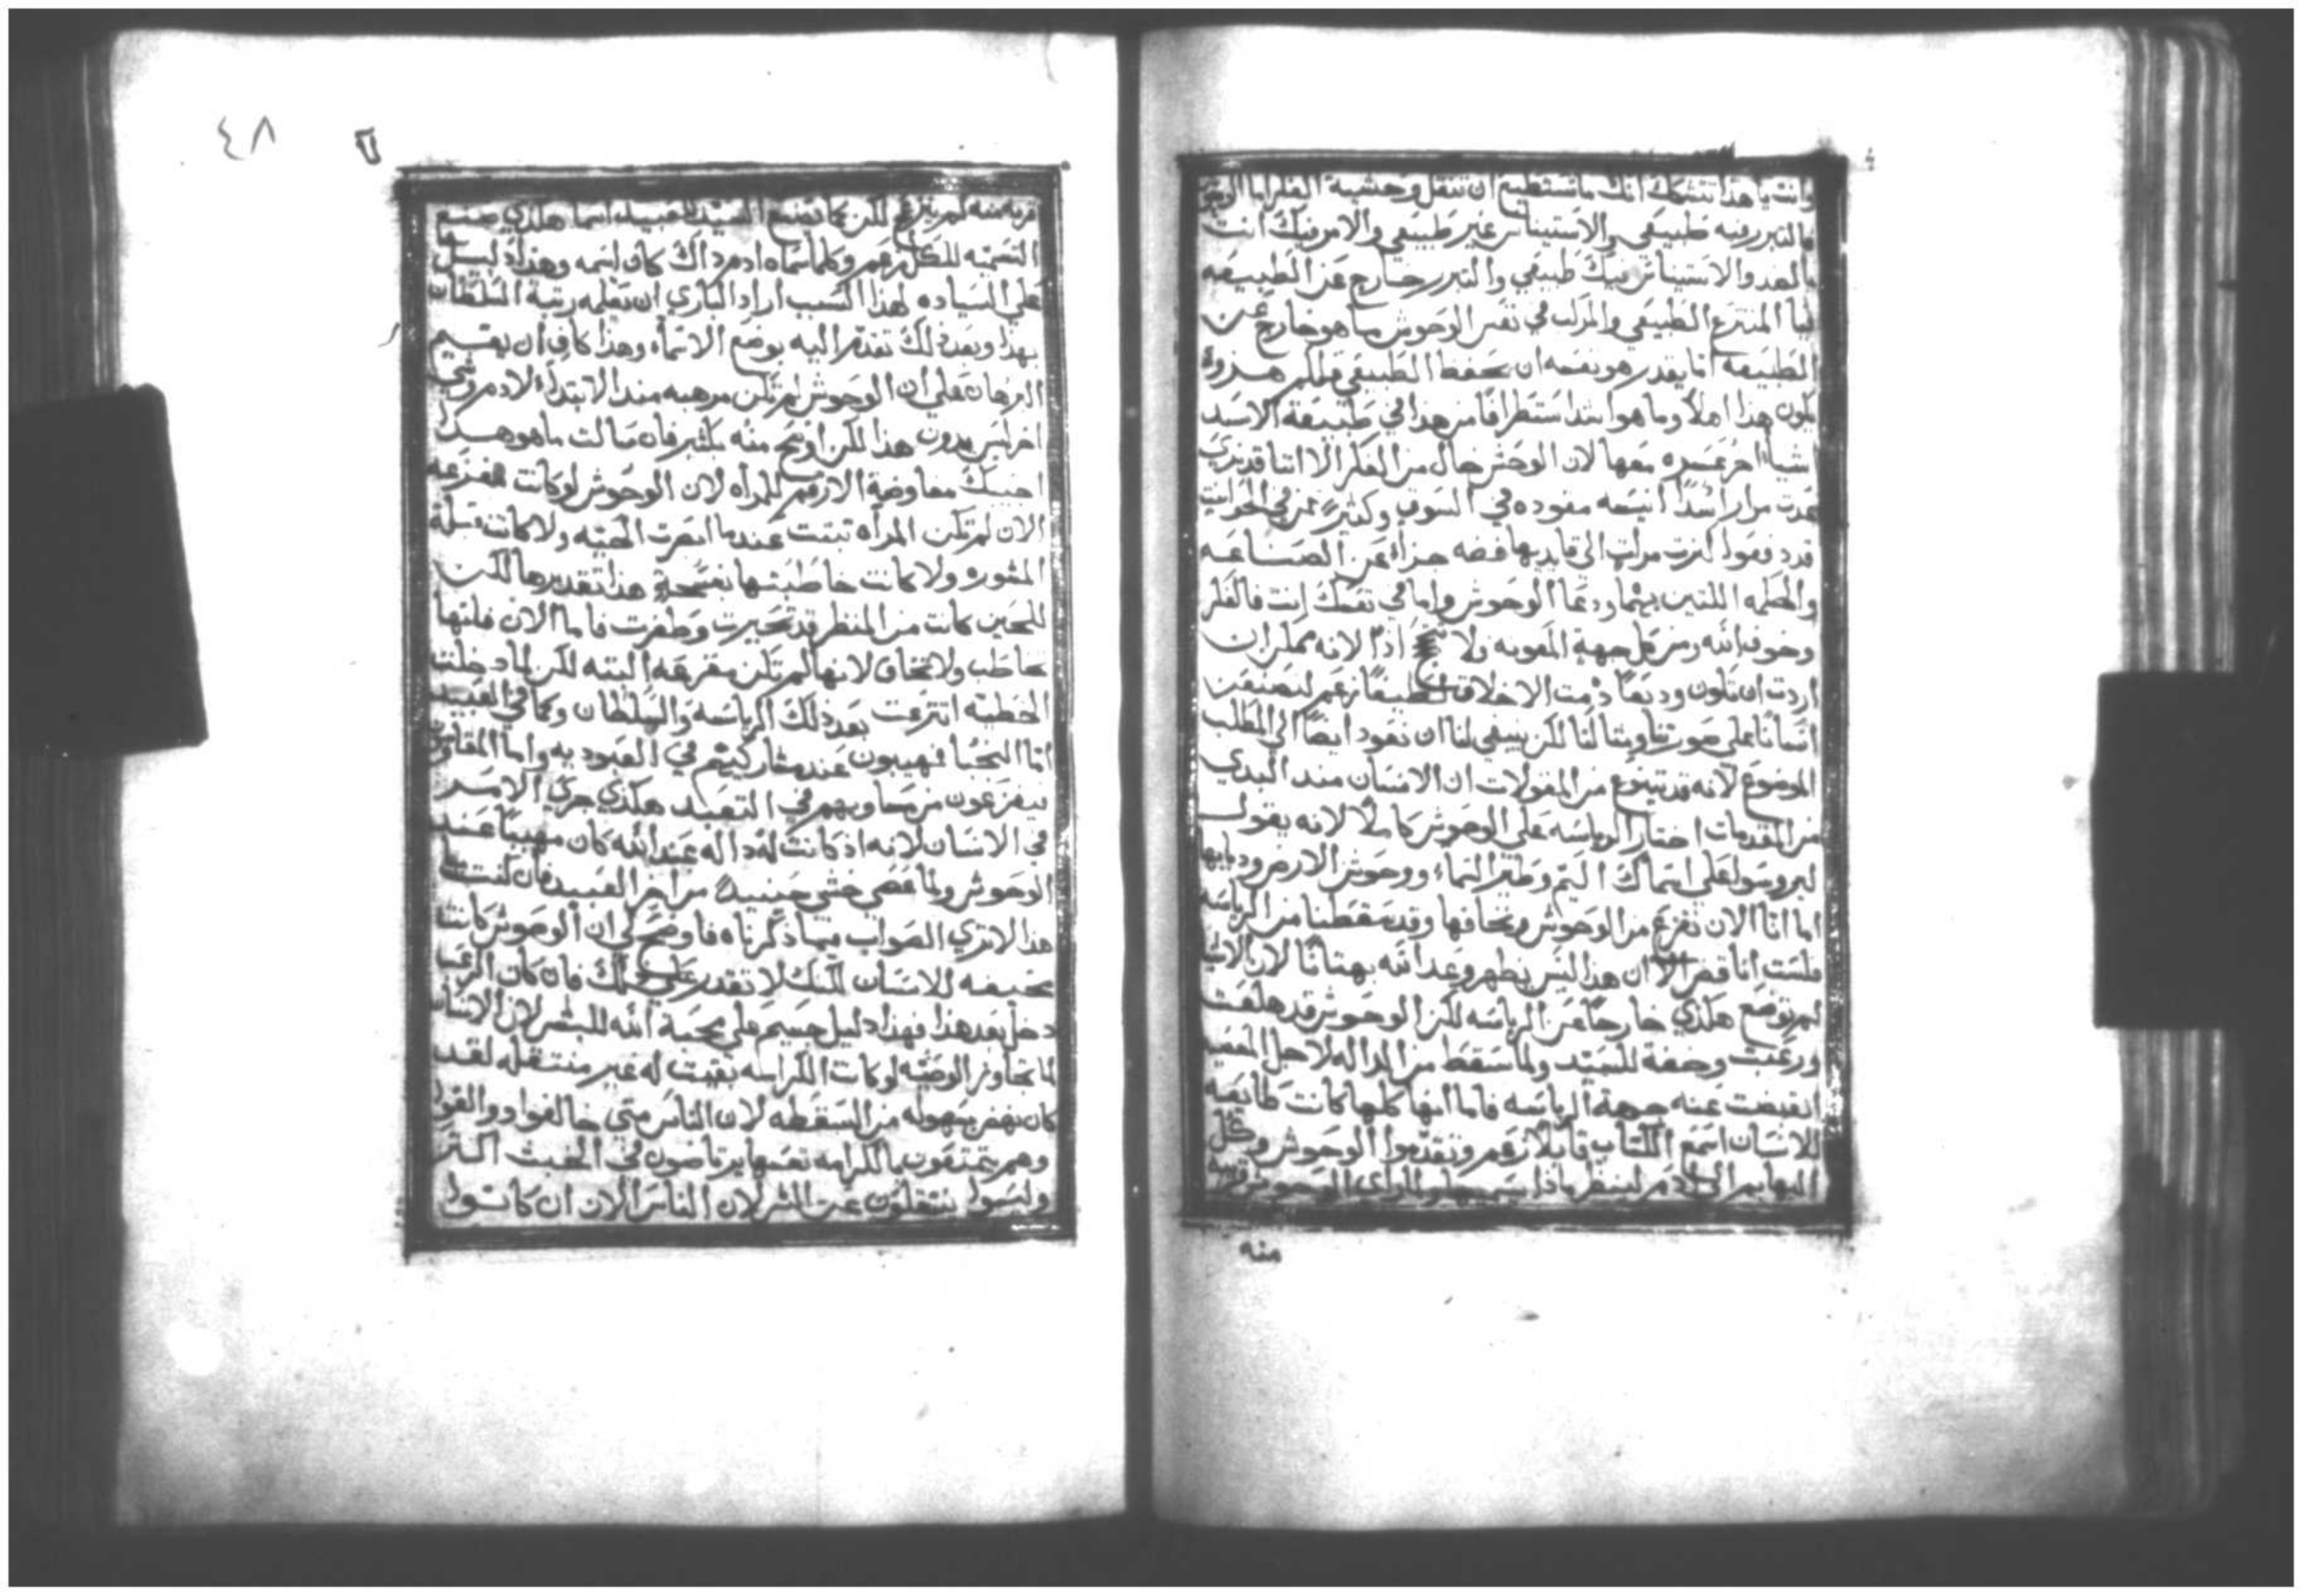 وانت يا هذا تتشكك انك ما تستطيع ان تنقل وحشية الفكر اما الوحوش
فالتبرر فيه طبيعي والاستيناس غير طبيعي والامر فيك انت
بالضد والاستيناس فيك طبيعي والتبرر خارج عن الطبيعه
فيا المنتزع الطبيعي والمركب في نفس الوحوش ما هو خارج عن
الطبيعه اما يقدر هو نفسه ان يحفظ الطبيعي
يكون هذا اهلاً وما هو اشد استطرافًا من هذا في طبيعة الاسد
اشياء اخر عسره معها لان الوحش خال من الفكر الا اننا قد نري
مرار اسدًا انيسه مقوده في السوق وكثير ممن في الحوانيت
قايديها فضه جزاء عن الصناعه
والحكمه اللتين بهما ودعا الوحوش واما في نفسك انت فالفكر
وخوف الله ومن كل جهة المعونه ولا اذًا لانه ممكن ان
اردت ان تكون وديعًا دمت الاخلاق لطيفًا زعم لنصنعن
انسانًا على صورتنا ومثالنا لكن ينبغي لنا ان نعود ايضًا الي المطلب
الموضوع لانه قد تبين من المقولات ان الانسان منذ البدي
من المقدمات اختار الرياسه على الوحوش كامله لانه يقول
ليروسوا على اسماك اليم وطير السماء ووحوش الارض ودبابها
اما انا الان نفزع من الوحوش ونخافها وقد سقطنا من الرياسه
فلست انا الا ان هذا ليس يظهر وعد الله بهتانًا لان
لم توضع هكذي خارجًا عن الرياسه لكن الوحوش قد هلعت
ورعبت وخضعة للسيد ولما سقط من الداله لاجل المعصيه
انقبضت عنه جهة الرياسه فاما انها كلها كانت طايعه
للانسان اسمع الكتاب قايلاً زعم وتقدموا الوحوش وكل
البهايم الى ادم لينظر ماذا يسميها ولما راي الوحوش قريبه
منه
٤٨
٦
قريبه منه لم يفزع لكن كما يضع السيد لعبيده اسما هكذي صنع
التسميه للكل زعم وكلما سماه ادم ذاك كان اسمه وهذا دليل
علي السياده لهذا السبب اراد الباري ان يعلمه رتبة السلطان
بهذا وبعد ذلك تقدم اليه بوضع الاسماء وهذا كافٍ ان يقيم
البرهان علي ان الوحوش لم تكن مرهبه منذ الابتداء لادم وشي
اخر ليس بدون هذا لكن اوضح منه بكثير فان سالت ما هو هذا
اجبتك مفاوضة الارقم للمرأه لان الوحوش لو كانت مفزعه
الان لم تكن المرأه تبتت عندما ابصرت الحيه ولا كانت قبلة
المشوره ولا كانت خاطبتها بفسحةٍ هذا تقديرها لكن
للحين كانت من المنظر قد تحيرت وطفرت فاما الان فلنها
تخاطب ولا تخاف لانها لم تكن مفزعه البته لكن لما دخلت
الخطيه انتزعت بعد ذلك الرياسه والسلطان وكما في العبيد
اما النجبا فهيبون عند مشاركيهم في العبوديه واما المقاومين
فيفزعون من مساويهم في التعبد هكذي جري الامر
في الانسان لانه اذ كانت له دالة عند الله كان مهيبًا عند
الوحوش ولما عصي خشي حينيذً من اخر العبيد فان كنت
هذا لا تري الصواب فيما ذكرناه فاوضح لي ان الوحوش كانت
مخيفه للانسان لكنك لا تقدر علي ذلك فان كان الرعب
دخل بعد هذا فهذا دليل جسيم علي محبة الله للبشر لان الانسان
لما تجاوز الوصيه لو كانت الكرامه بقيت له غير منتقله لقد
كان نهض بسهوله من السقطه لان الناس متي خالفوا وانفردوا
وهم يتمتعون بالكرامه نفسها يرتاضون في الخبث اكثر
وليسوا ينتقلون عن الشر لان الناس الان ان كانوا